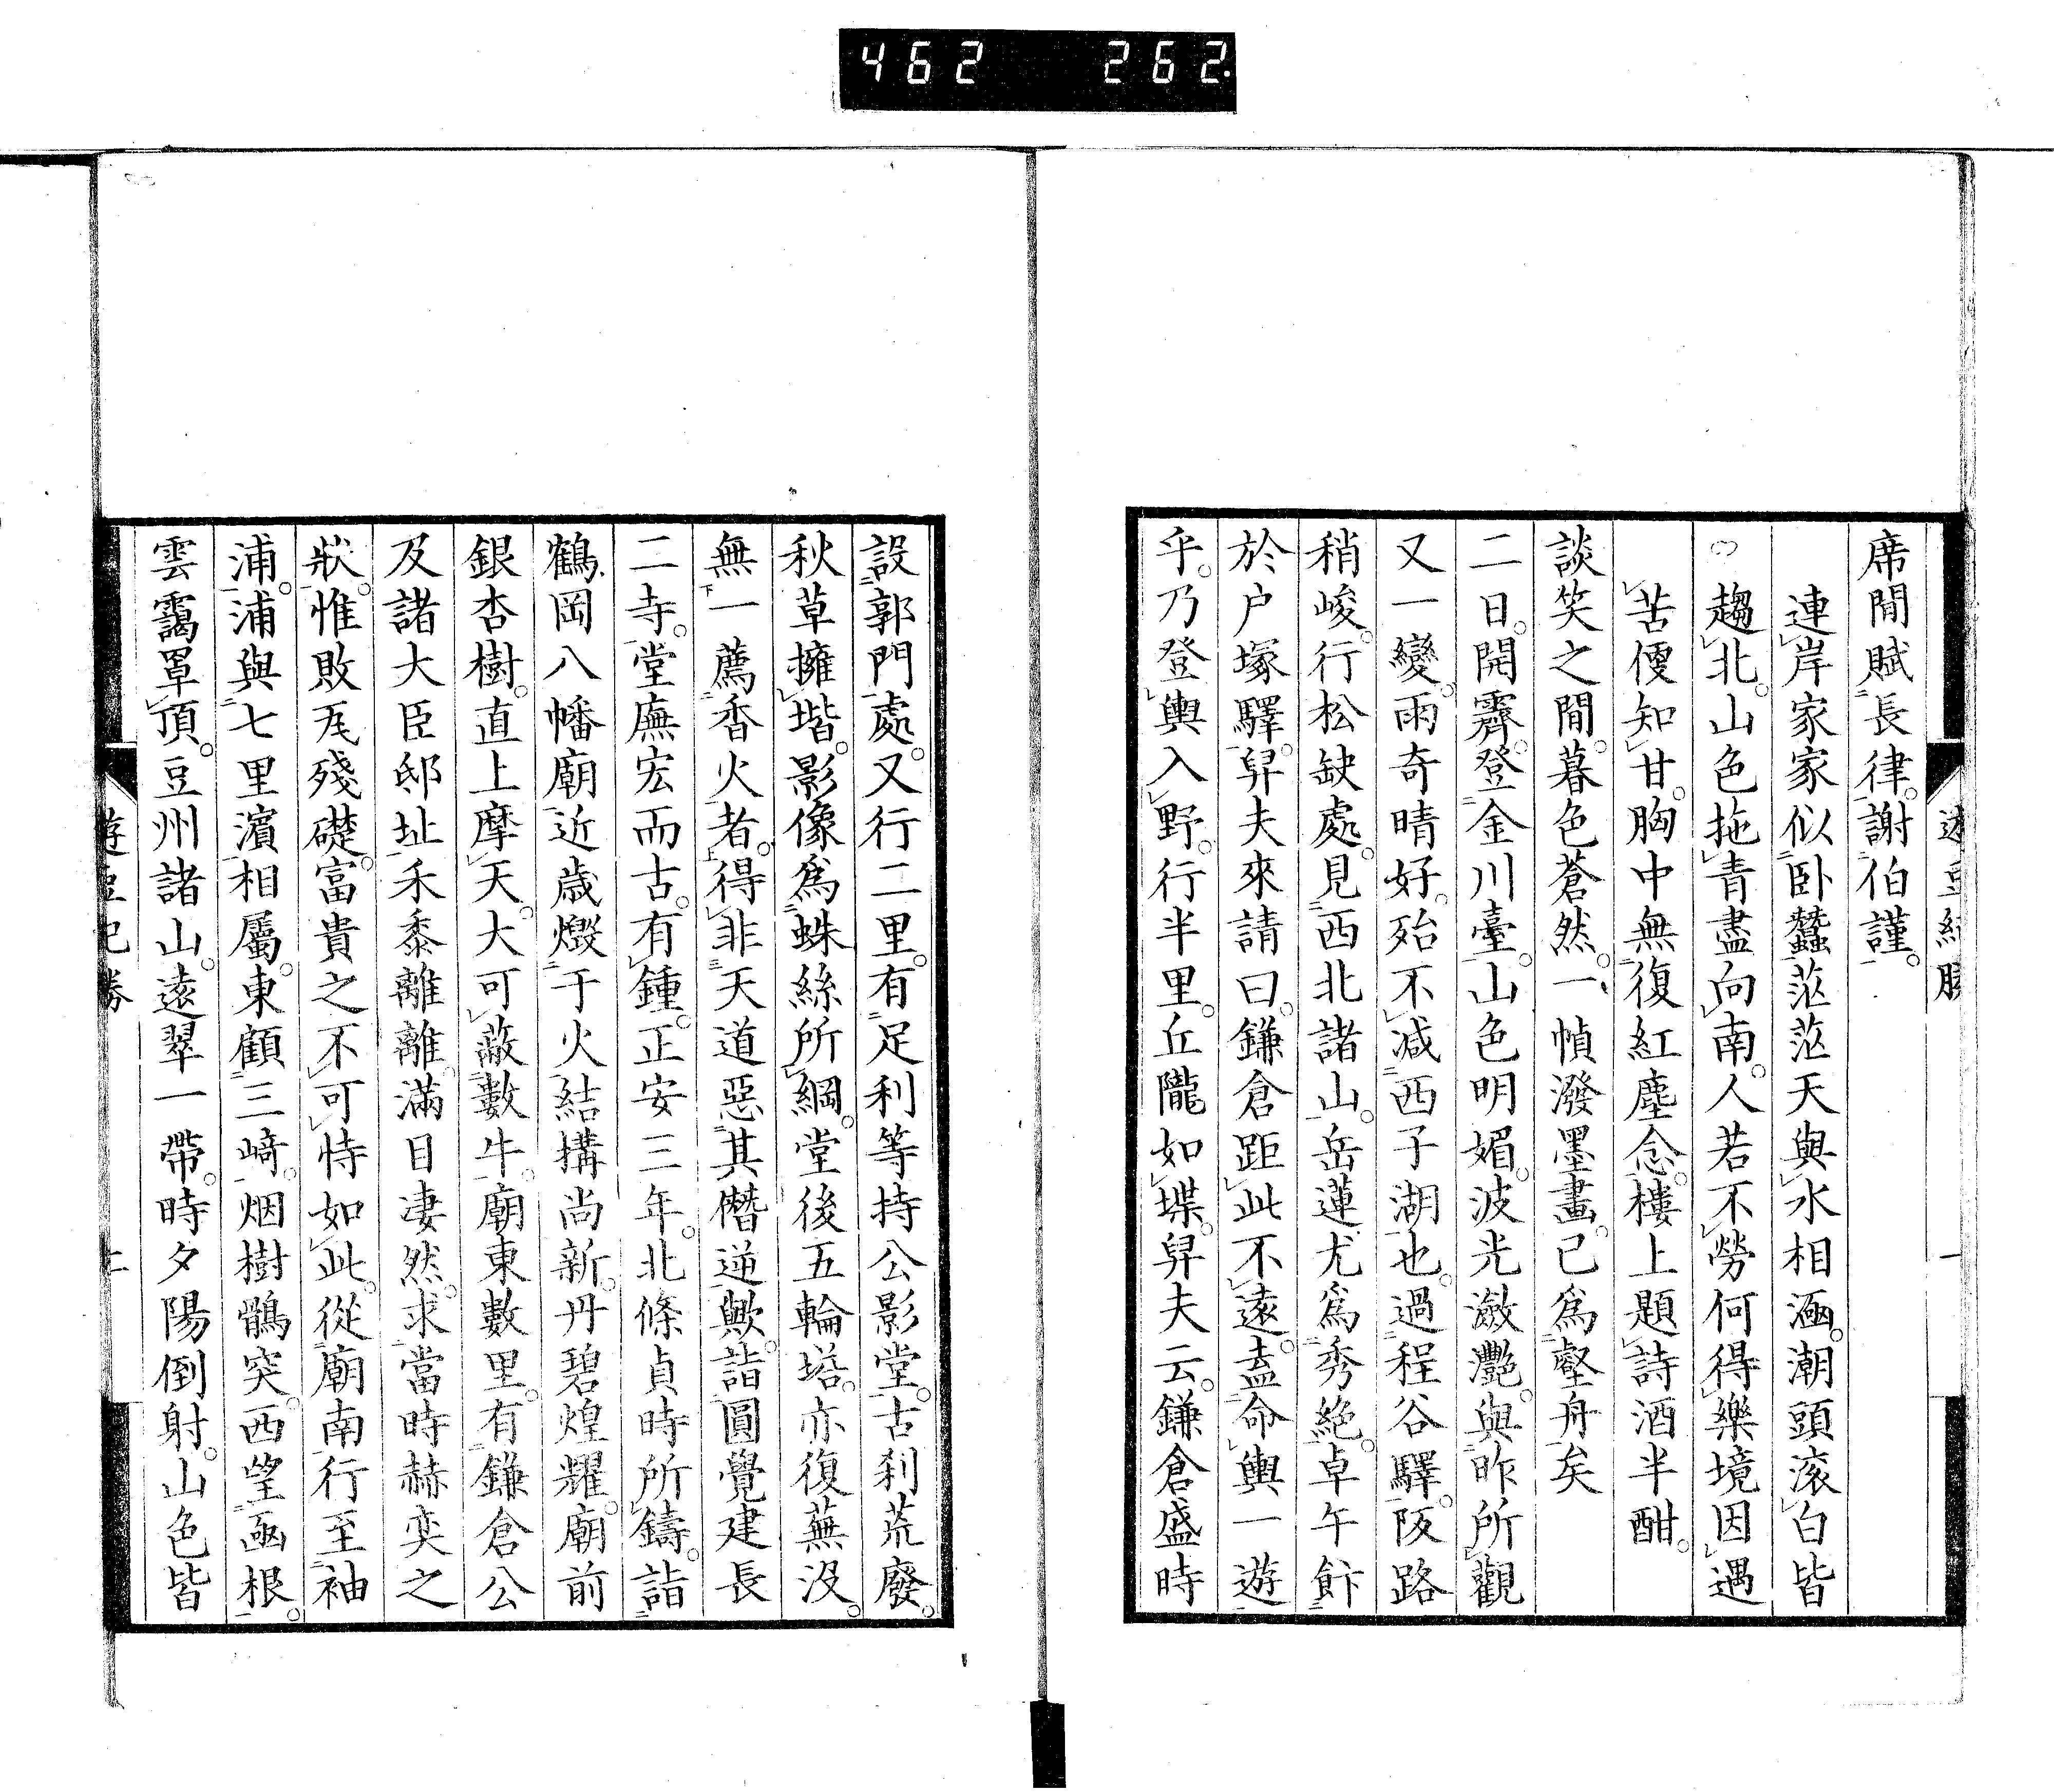 462 262.
席間賦長律。謝伯謹。
連岸家家似臥蠶。茫茫天與水相涵。潮頭滚白皆
趨北。山色拖青盡向南。人若不勞何得樂。境因遇
苦便知甘。胸中無復紅塵念。樓上題詩酒半酣。
談笑之間。暮色蒼然。一幀潑墨畫。已爲壑舟矣
二日。開霽。登金川臺。山色明媚。波光瀲灎。與昨所觀
又一變。雨奇晴好。殆不减西子湖也。過程谷驛。阪路
稍峻。行松缺處。見西北諸山。岳蓮尤爲秀絶。卓午飰
於户塚驛。舁夫來請曰。鎌倉距此不遠。盍命輿一遊
乎。乃登輿入野。行半里。丘隴如堞。舁夫云。鎌倉盛時
設郭門處。又行二里。有足利等持公影堂。古刹荒廢。
秋草擁堦。影像爲蛛絲所綱。堂後五輪塔。亦復蕪没。
無一薦香火者。得非天道惡其僭逆歟。詣圓覺建長
二寺。堂廡宏而古。有鍾。正安三年。北條貞時所鑄。詣
鶴岡八幡廟。近歳燬于火。結構尚新。丹碧煌耀。廟前
銀杏樹。直上摩天。大可蔽數牛。廟東數里。有鎌倉公
及諸大臣邸址。禾黍離離。滿目凄然。求當時赫奕之
狀。惟敗瓦殘礎。富貴之不可恃如此。從廟南行至袖
浦。浦與七里濱相屬。東顧三﨑。烟樹鶻突。西望凾根。
雲靄罩頂。豆州諸山。遠翠一帶。時夕陽倒射。山色皆
遊豆紀勝